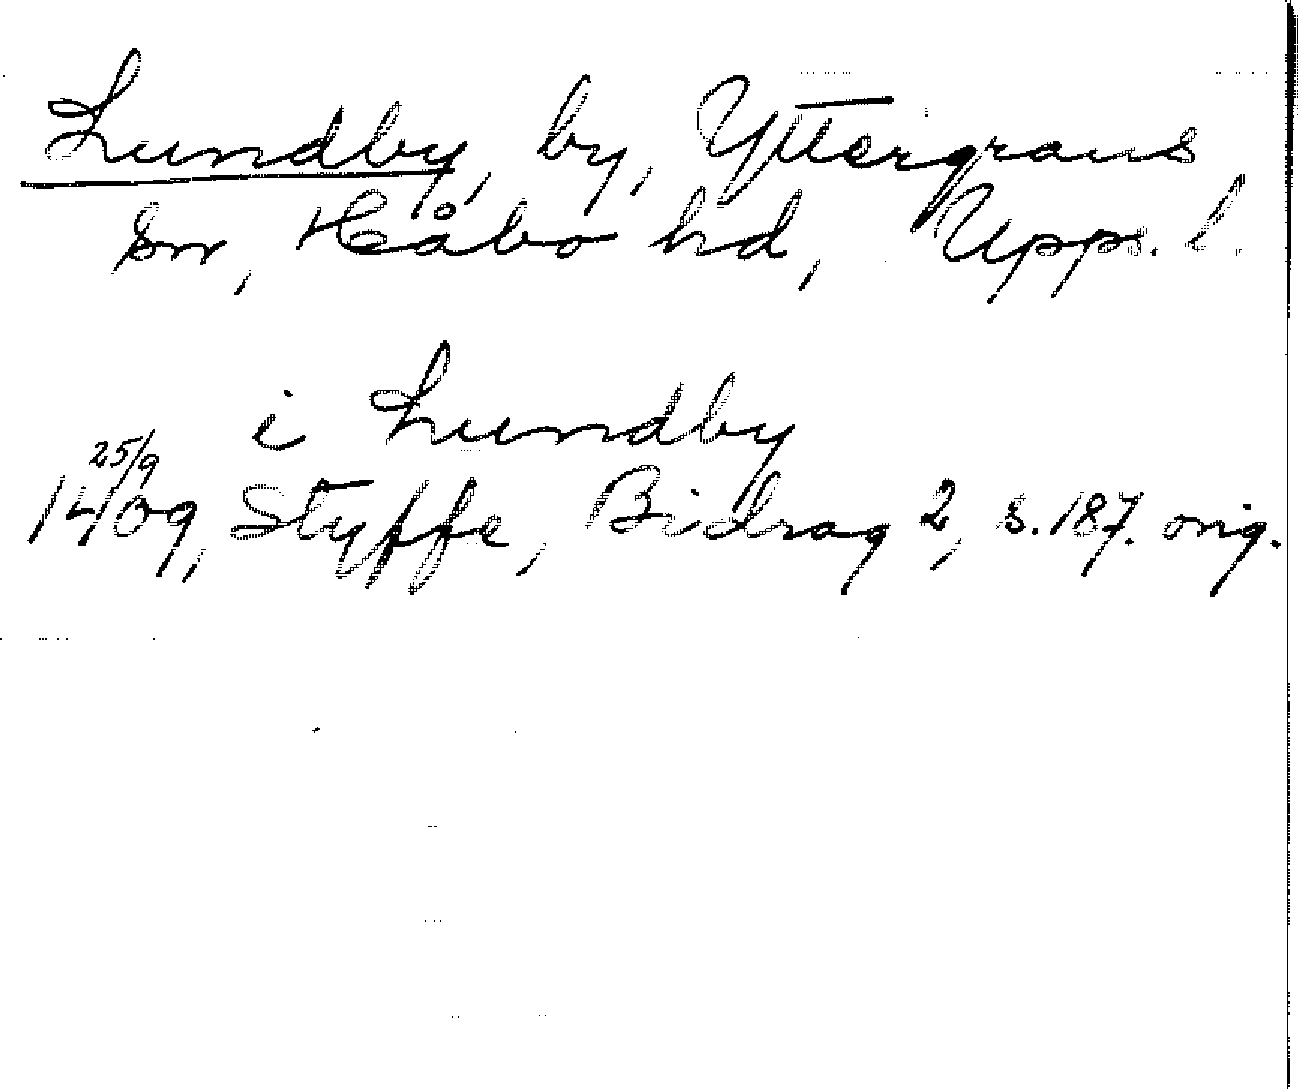 Lundby, by, Yttergrans
sn, Håbo hd, Upps. l.
i Lundby
25/9
1409, Styffe, Bidrag 2, s. 187. orig.